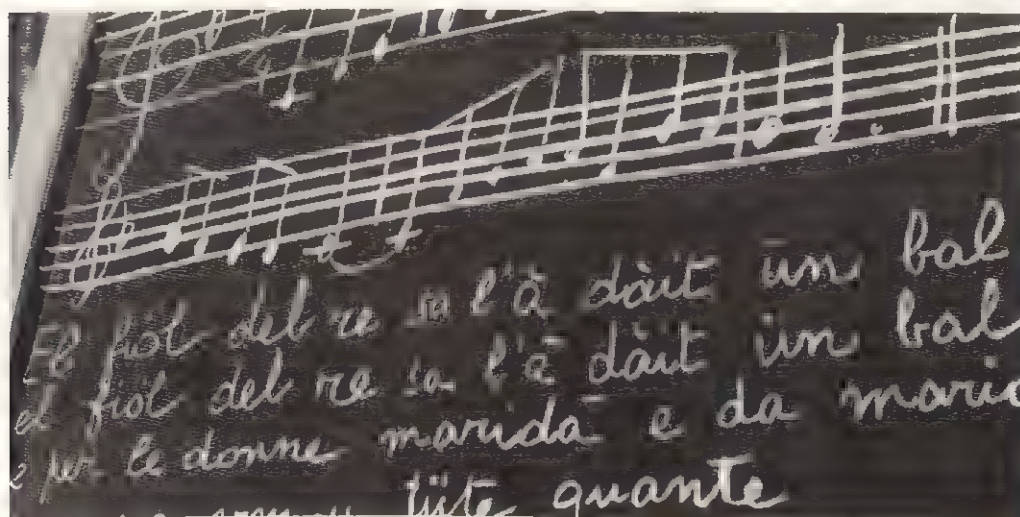 El fiol del re l'à dàit un bal
el fiol del re l'à dàit un bal
e per le donne maridà e da marid
tüte quante